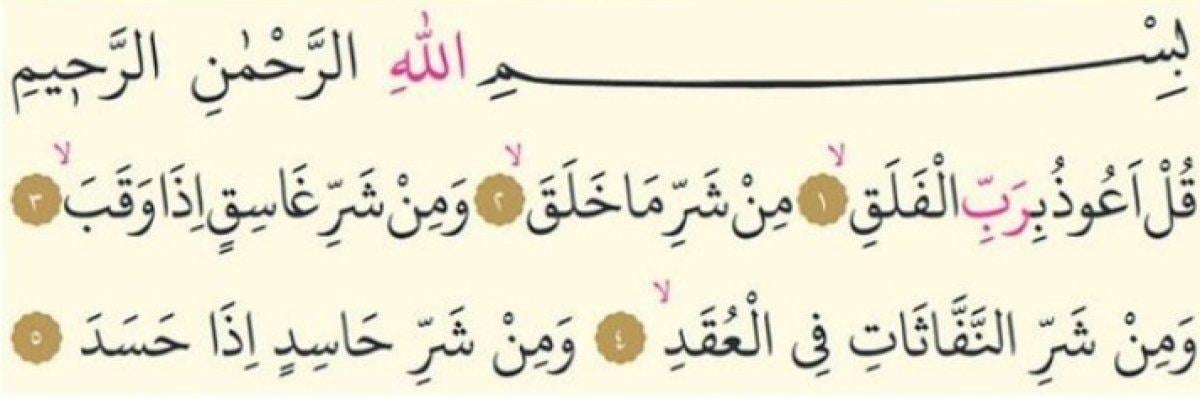 بِسْمِ اللّٰهِ الرَّحْمٰنِ الرَّحٖيمِ
قُلْ اَعُوذُ بِرَبِّ الْفَلَقِۙ ﴿١﴾ مِنْ شَرِّ مَا خَلَقَۙ ﴿٢﴾ وَمِنْ شَرِّ غَاسِقٍ اِذَا وَقَبَۙ ﴿٣﴾
وَمِنْ شَرِّ النَّفَّاثَاتِ فِى الْعُقَدِۙ ﴿٤﴾ وَمِنْ شَرِّ حَاسِدٍ اِذَا حَسَدَ ﴿٥﴾